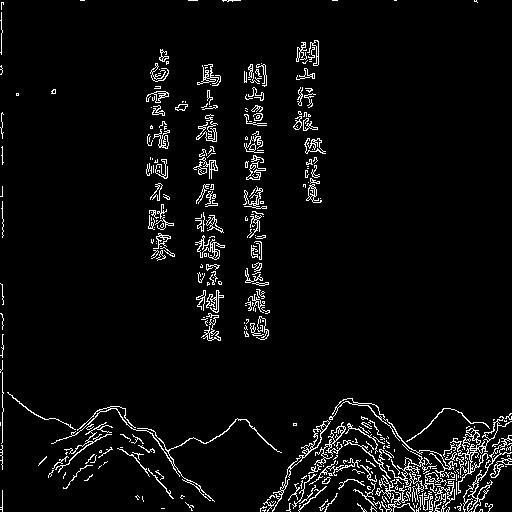 關山行旅倣范寬
關山迢遞客途寬目送飛鴻
馬上看蔀屋板橋深樹裏
白雲清澗不勝寒